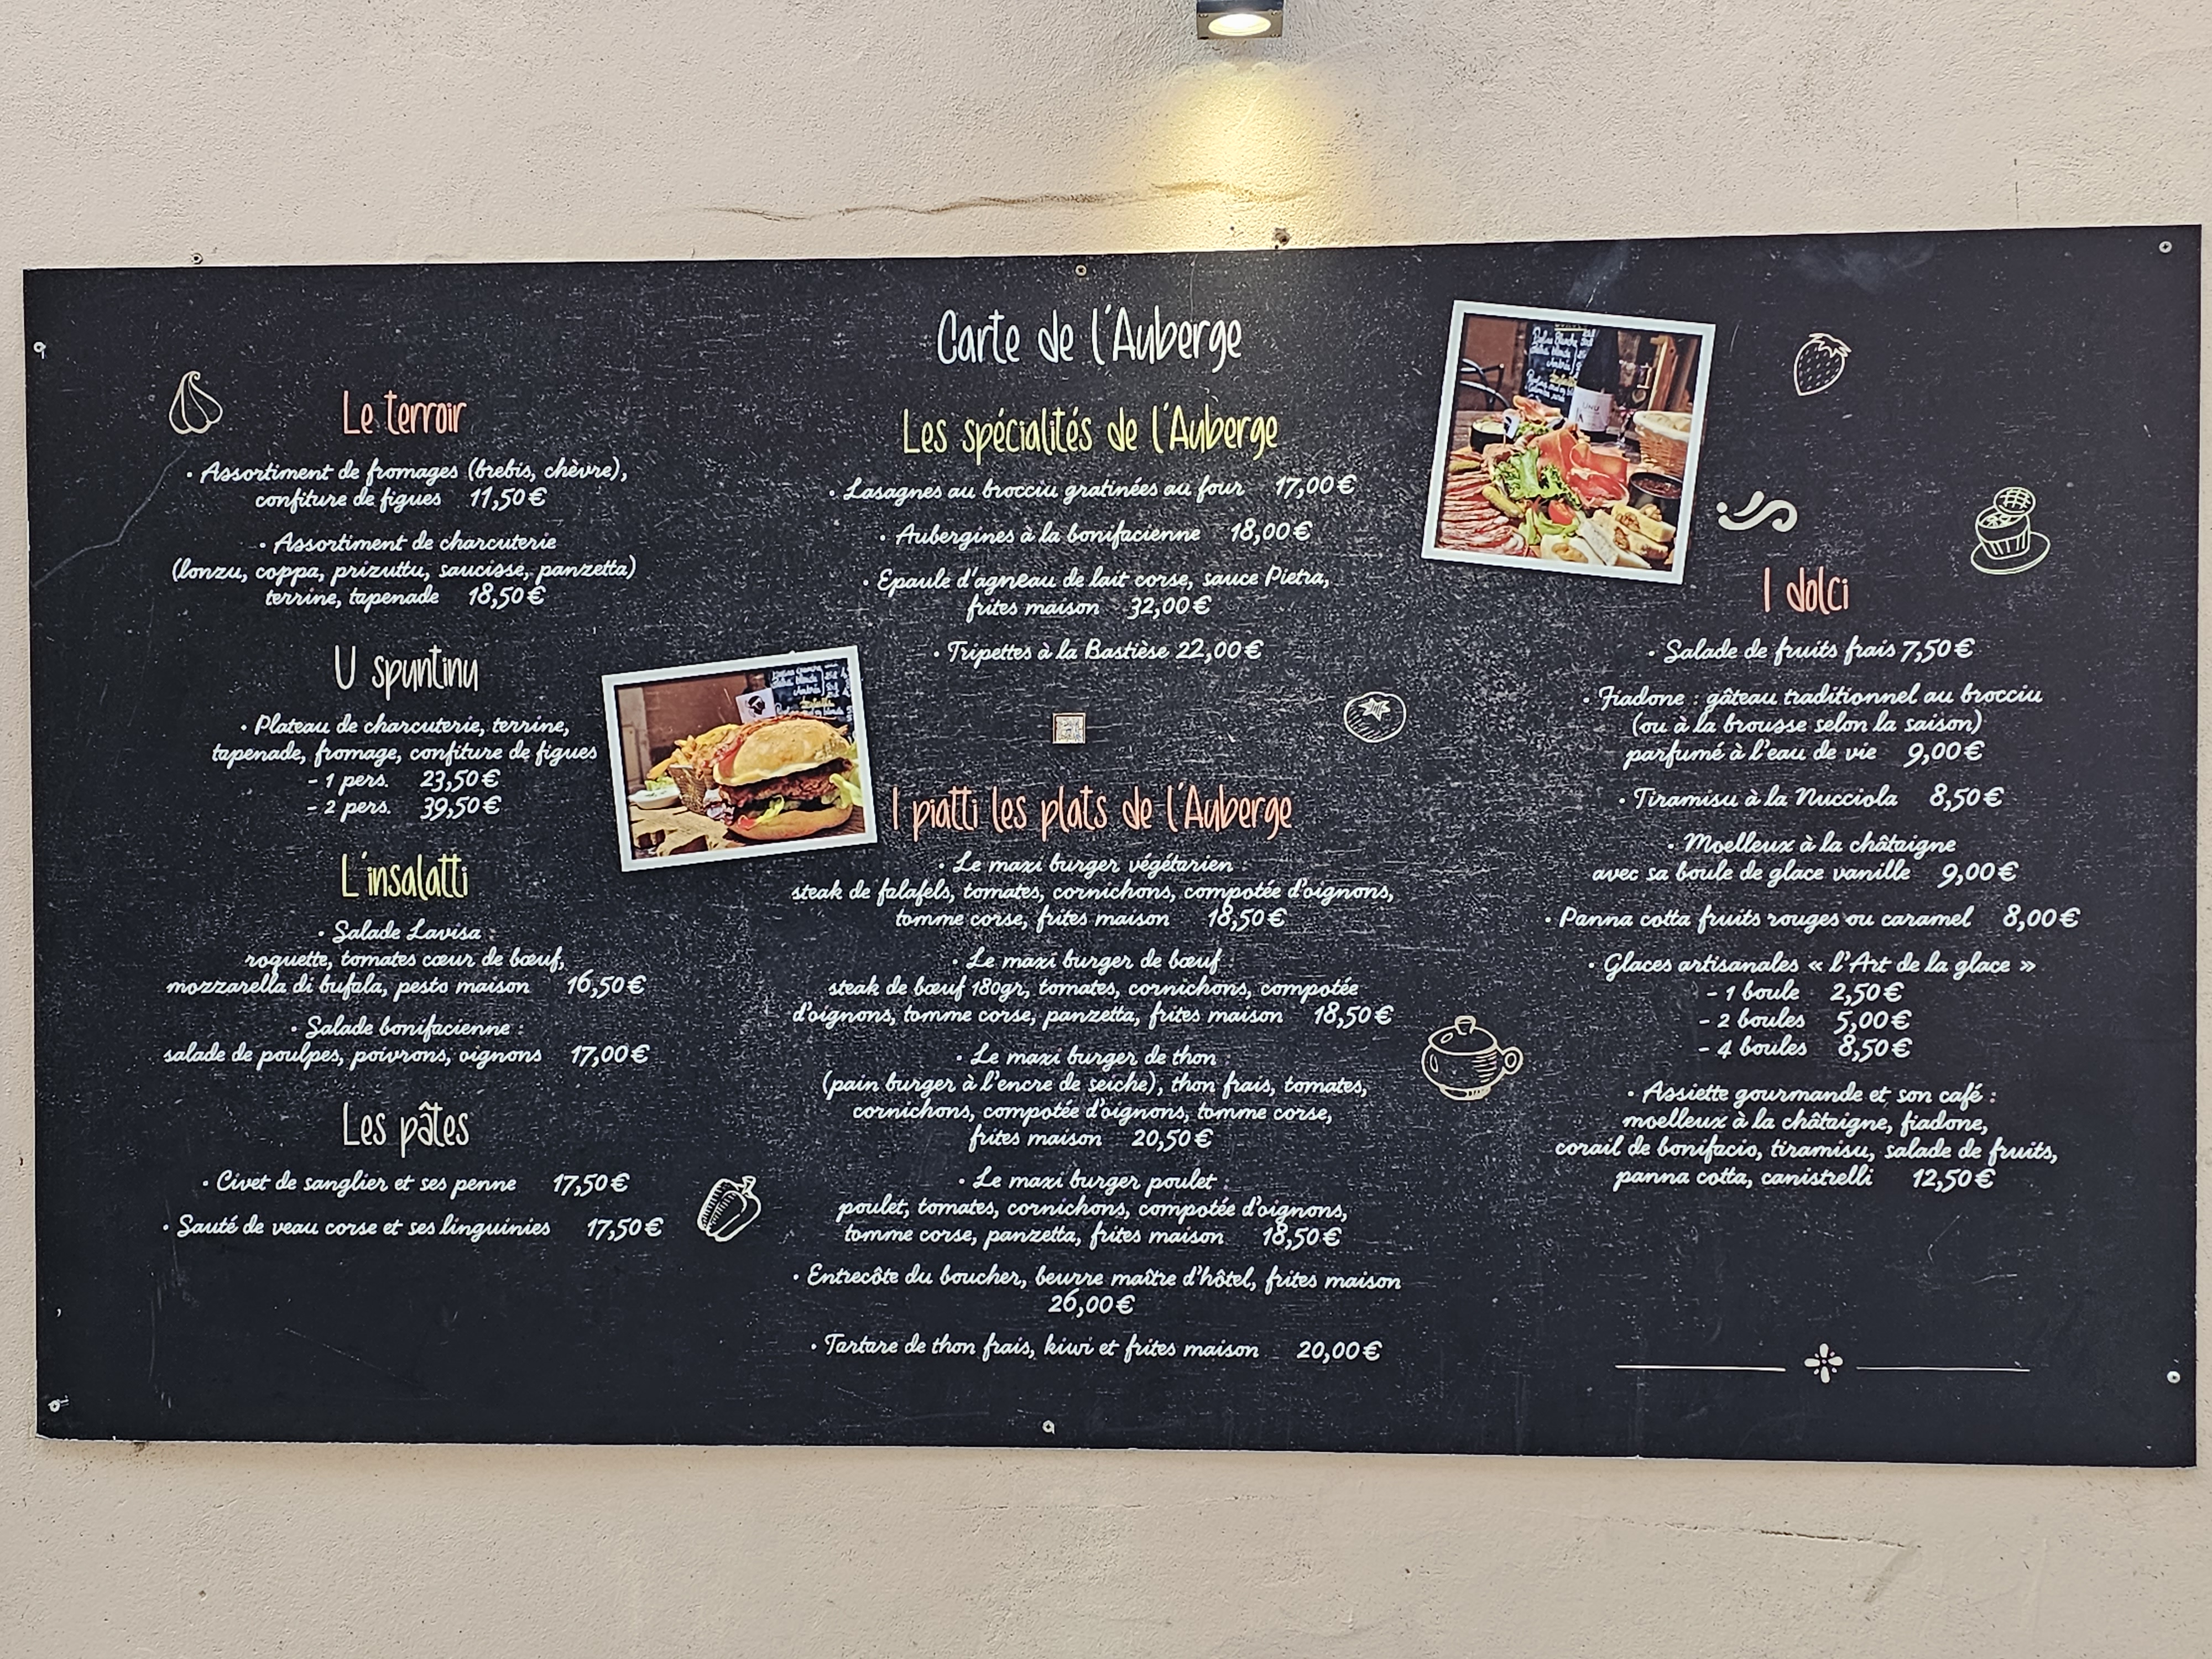 Carte de l'Auberge
Le terroir
• Assortiment de fromages (brebis, chèvre),
confiture de figues 11,50€
• Assortiment de charcuterie
(lonzu, coppa, prizuttu, saucisse, panzetta)
terrine, tapenade 18,50€
U spuntinu
• Plateau de charcuterie, terrine,
tapenade, fromage, confiture de figues
- 1 pers. 23,50€
- 2 pers. 39,50€
L'insalatti
• Salade Lavisa :
roquette, tomates cœur de bœuf,
mozzarella di bufala, pesto maison 16,50€
• Salade bonifacienne :
salade de poulpes, poivrons, oignons 17,00€
Les pâtes
• Civet de sanglier et ses penne 17,50€
• Sauté de veau corse et ses linguinies 17,50€
Les spécialités de l'Auberge
• Lasagnes au brocciu gratinées au four 17,00€
• Aubergines à la bonifacienne 18,00€
• Epaule d'agneau de lait corse, sauce Pietra,
frites maison 32,00€
• Tripettes à la Bastièse 22,00€
I piatti les plats de l'Auberge
• Le maxi burger végétarien :
steak de falafels, tomates, cornichons, compotée d'oignons,
tomme corse, frites maison 18,50€
• Le maxi burger de bœuf :
steak de bœuf 180gr, tomates, cornichons, compotée
d'oignons, tomme corse, panzetta, frites maison 18,50€
• Le maxi burger de thon :
(pain burger à l'encre de seiche), thon frais, tomates,
cornichons, compotée d'oignons, tomme corse,
frites maison 20,50€
• Le maxi burger poulet :
poulet, tomates, cornichons, compotée d'oignons,
tomme corse, panzetta, frites maison 18,50€
• Entrecôte du boucher, beurre maître d'hôtel, frites maison
26,00€
• Tartare de thon frais, kiwi et frites maison 20,00€
I dolci
• Salade de fruits frais 7,50€
• Fiadone : gâteau traditionnel au brocciu
(ou à la brousse selon la saison)
parfumé à l'eau de vie 9,00€
• Tiramisu à la Nucciola 8,50€
• Moelleux à la châtaigne
avec sa boule de glace vanille 9,00€
• Panna cotta fruits rouges ou caramel 8,00€
• Glaces artisanales « l'Art de la glace »
- 1 boule 2,50€
- 2 boules 5,00€
- 4 boules 8,50€
• Assiette gourmande et son café :
moelleux à la châtaigne, fiadone,
corail de bonifacio, tiramisu, salade de fruits,
panna cotta, canistrelli 12,50€